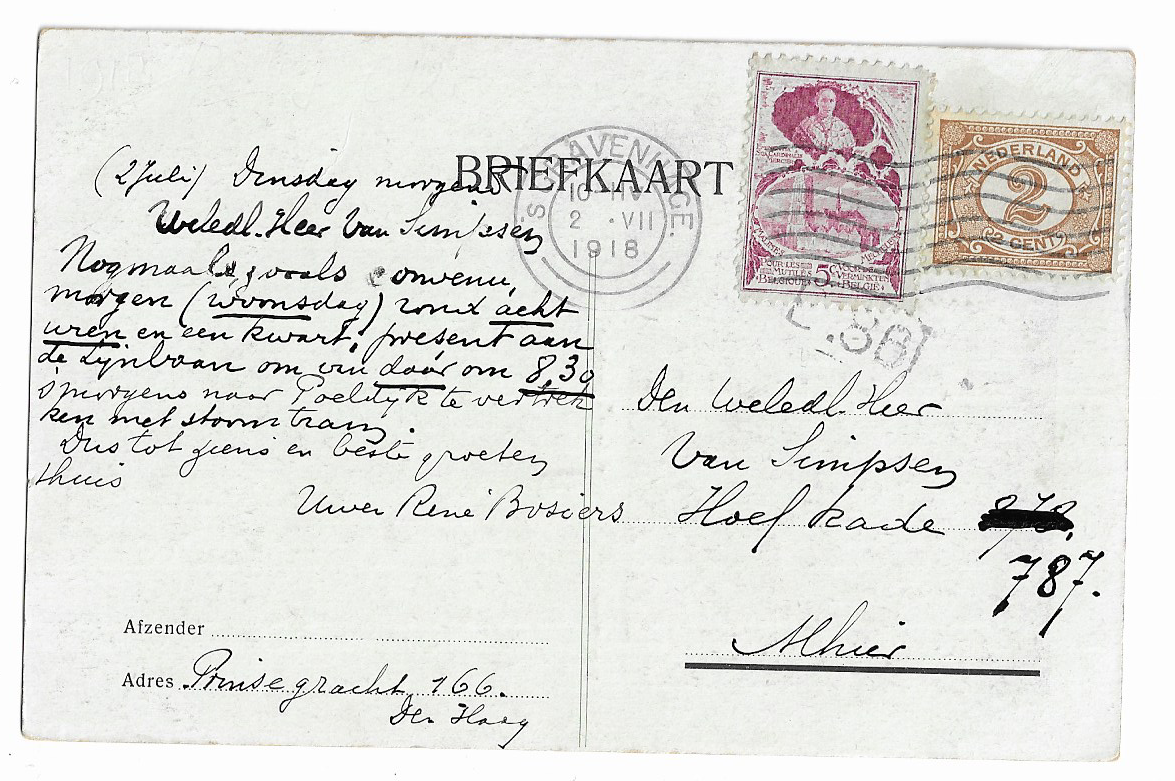 BRIEFKAART
(2 Juli) Dinsdag morgen
Weledl. Heer Van Simpsen
Nogmaals, zooals convenu,
morgen (woonsdag) rond acht
uren en een kwart, present aan
de Lijnbaan om van daar om 8,30
'smorgens naar Poeldijk te vertrek
ken met stoomtram.
Dus tot ziens en beste groeten
thuis
Uwen René Bosiers
Afzender
Adres Prinsegracht 166.
Den Haag
'S GRAVENHAGE.
2 VII
1918
CARDINALIS
MALINES
MECHELEN
POUR LES MUTILÉS BELGIQUE
5c
VOOR DE VERMINKTEN BELGIË
NEDERLAND
2
2 CENT
Den Weledl. Heer
Van Simpsen
Hoefkade
787.
Alhier